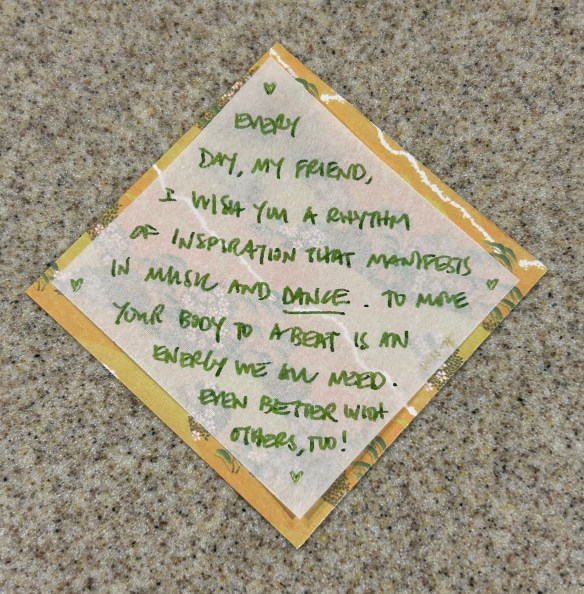 EVERY
DAY, MY FRIEND,
I WISH YOU A RHYTHM
OF INSPIRATION THAT MANIFESTS
IN MUSIC AND DANCE. TO MOVE
YOUR BODY TO A BEAT IS AN
ENERGY WE ALL NEED.
EVEN BETTER WITH
OTHERS, TOO!